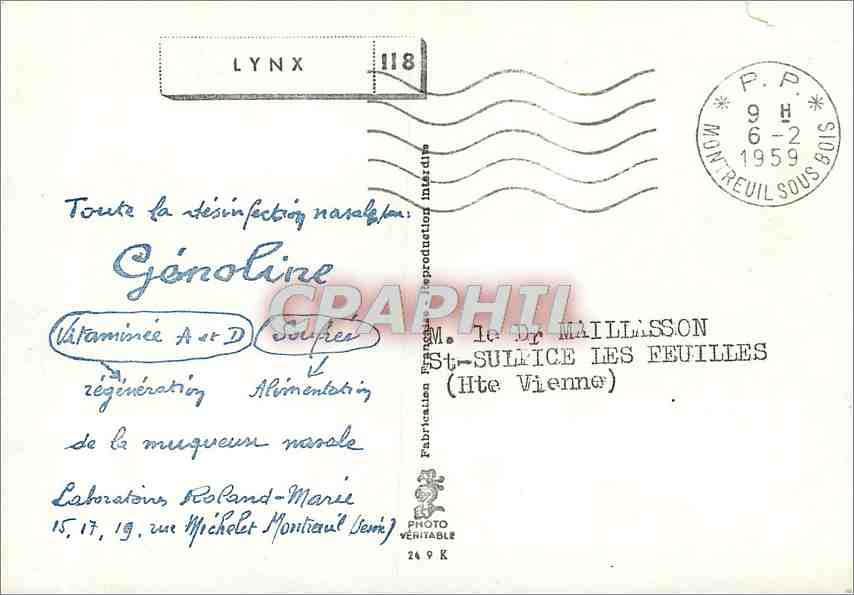 LYNX 118
P. P.
9 H
6 - 2
1959
MONTREUIL SOUS BOIS
Toute la désinfection nasale par :
Génoline
Vitaminée A et D Soufrée
régénération Alimentation
de la muqueuse nasale
Laboratoires Roland-Marie
15, 17, 19, rue Michelet Montreuil (Seine)
Fabrication Française - Reproduction interdite
CPAPHIL
M. le Dr MAILLASSON
St-SULPICE LES FEUILLES
(Hte Vienne)
PHOTO
VÉRITABLE
24 9 K